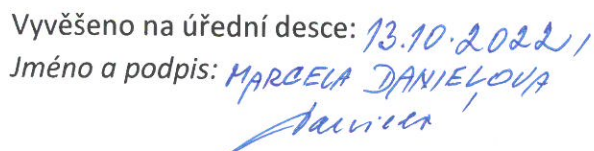 Vyvěšeno na úřední desce: 13.10.2022,
Jméno a podpis: MARCELA DANIELOVÁ